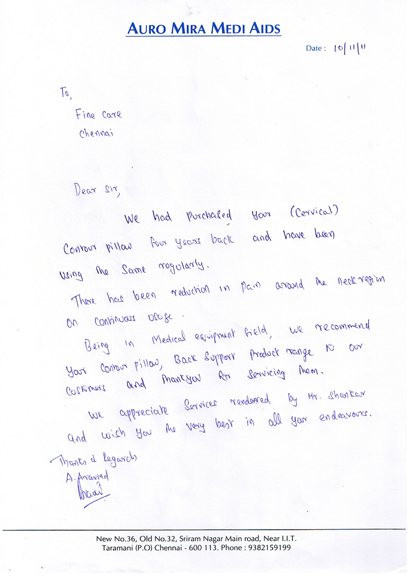 AURO MIRA MEDI AIDS
Date : 10/11/11
To,
Fine Care
Chennai
Dear Sir,
We had Purchased your (Cervical)
Contour pillow four years back and have been
using the Same regularly.
There has been reduction in Pain around the neck region
on continuous usage.
Being in Medical equipment field, we recommend
your Contour Pillow, Back Support Product range to our
Customers and Thankyou for Servicing them.
We appreciate Services rendered by Mr. Shankar
and wish you the very best in all your endeavours.
Thanks & Regards
A. Aravind
New No.36, Old No.32, Sriram Nagar Main road, Near I.I.T.
Taramani (P.O) Chennai - 600 113. Phone : 9382159199